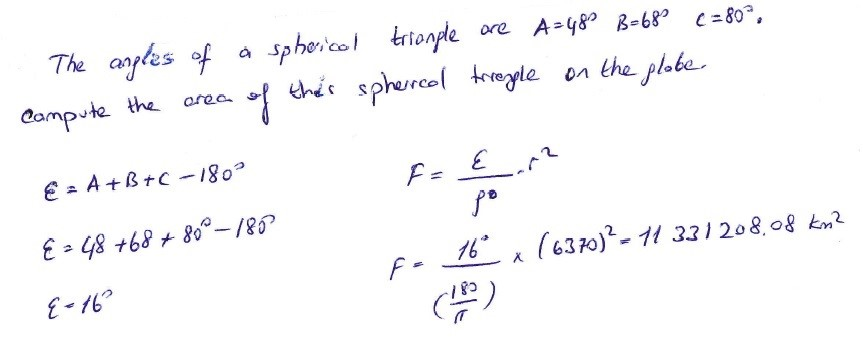 The angles of a spherical triangle are A=48° B=68° C=80°.
Compute the area of this spherical triangle on the globe.
ε = A+B+C-180°
ε = 48+68+80°-180°
ε = 16°
F = ε/ρ° . r²
F = 16°/(180/π) x (6370)² = 11 331 208.08 km²